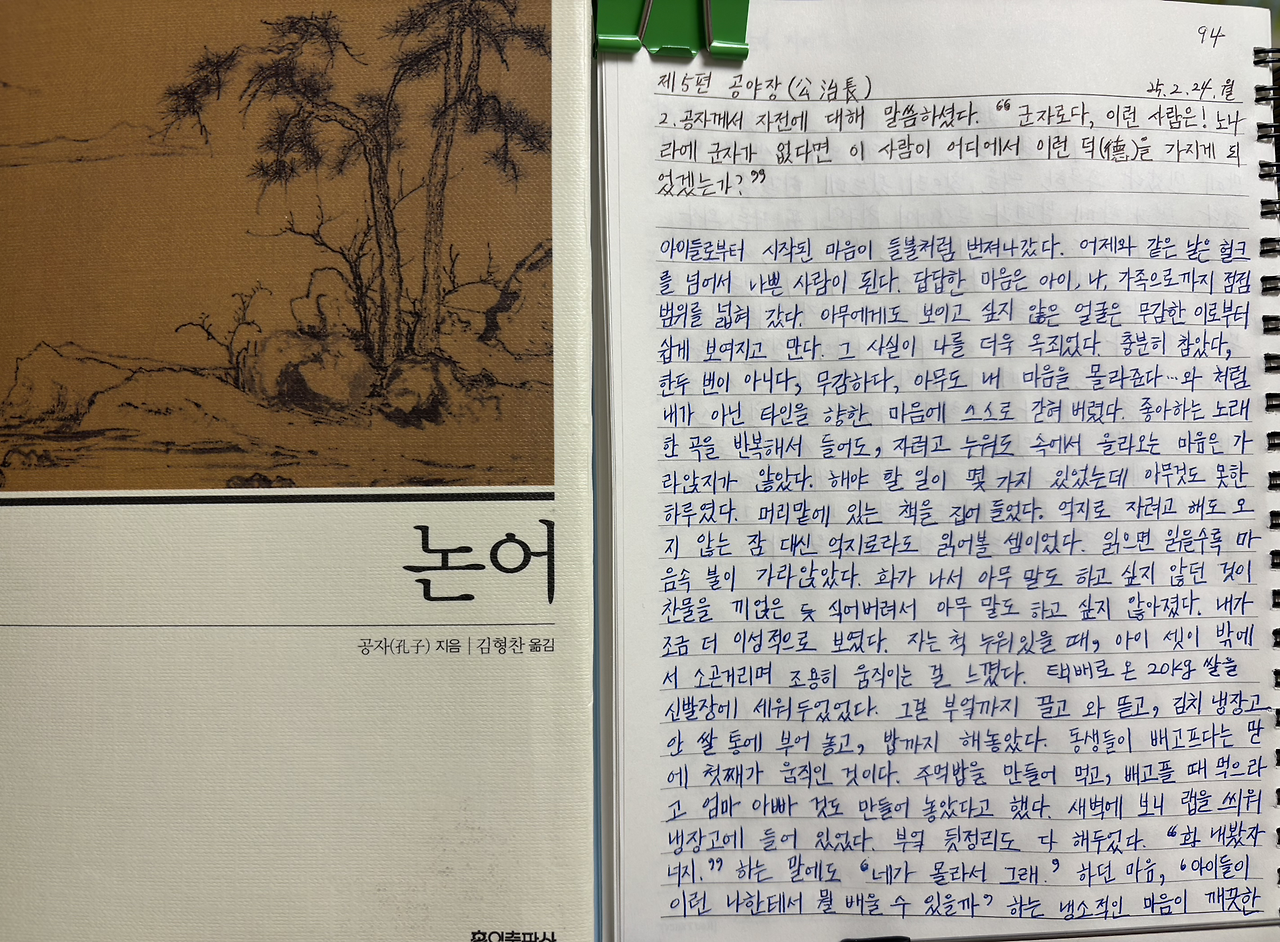 논어
공자(孔子) 지음 | 김형찬 옮김
홍익출판사
94
제5편 공야장(公冶長) 25.2.24.월
2.공자께서 자천에 대해 말씀하셨다. "군자로다, 이런 사람은! 노나
라에 군자가 없다면 이 사람이 어디에서 이런 덕(德)을 가지게 되
었겠는가?"
아이들로부터 시작된 마음이 들불처럼 번져나갔다. 어제와 같은 날은 헐크
를 넘어서 나쁜 사람이 된다. 답답한 마음은 아이, 나, 가족으로까지 점점
범위를 넓혀 갔다. 아무에게도 보이고 싶지 않은 얼굴은 무감한 이로부터
쉽게 보여지고 만다. 그 사실이 나를 더욱 옥죄었다. 충분히 참았다,
한두 번이 아니다, 무감하다, 아무도 내 마음을 몰라준다…와 처럼
내가 아닌 타인을 향한 마음에 스스로 갇혀 버렸다. 좋아하는 노래
한 곡을 반복해서 들어도, 자려고 누워도 속에서 올라오는 마음은 가
라앉지가 않았다. 해야 할 일이 몇 가지 있었는데 아무것도 못한
하루였다. 머리맡에 있는 책을 집어 들었다. 억지로 자려고 해도 오
지 않는 잠 대신 억지로라도 읽어볼 셈이었다. 읽으면 읽을수록 마
음속 불이 가라앉았다. 화가 나서 아무 말도 하고 싶지 않던 것이
찬물을 끼얹은 듯 식어버려서 아무 말도 하고 싶지 않아졌다. 내가
조금 더 이성적으로 보였다. 자는 척 누워있을 때, 아이 셋이 밖에
서 소곤거리며 조용히 움직이는 걸 느꼈다. 택배로 온 20kg 쌀을
신발장에 세워두었었다. 그걸 부엌까지 끌고 와 뜯고, 김치 냉장고
안 쌀 통에 부어 놓고, 밥까지 해놓았다. 동생들이 배고프다는 말
에 첫째가 움직인 것이다. 주먹밥을 만들어 먹고, 배고플 때 먹으라
고 엄마 아빠 것도 만들어 놓았다고 했다. 새벽에 보니 랩을 씌워
냉장고에 들어 있었다. 부엌 뒷정리도 다 해두었다. "화 내봤자
너지." 하는 말에도 '네가 몰라서 그래.' 하던 마음, '아이들이
이런 나한테서 뭘 배울 수 있을까' 하는 냉소적인 마음이 깨끗한